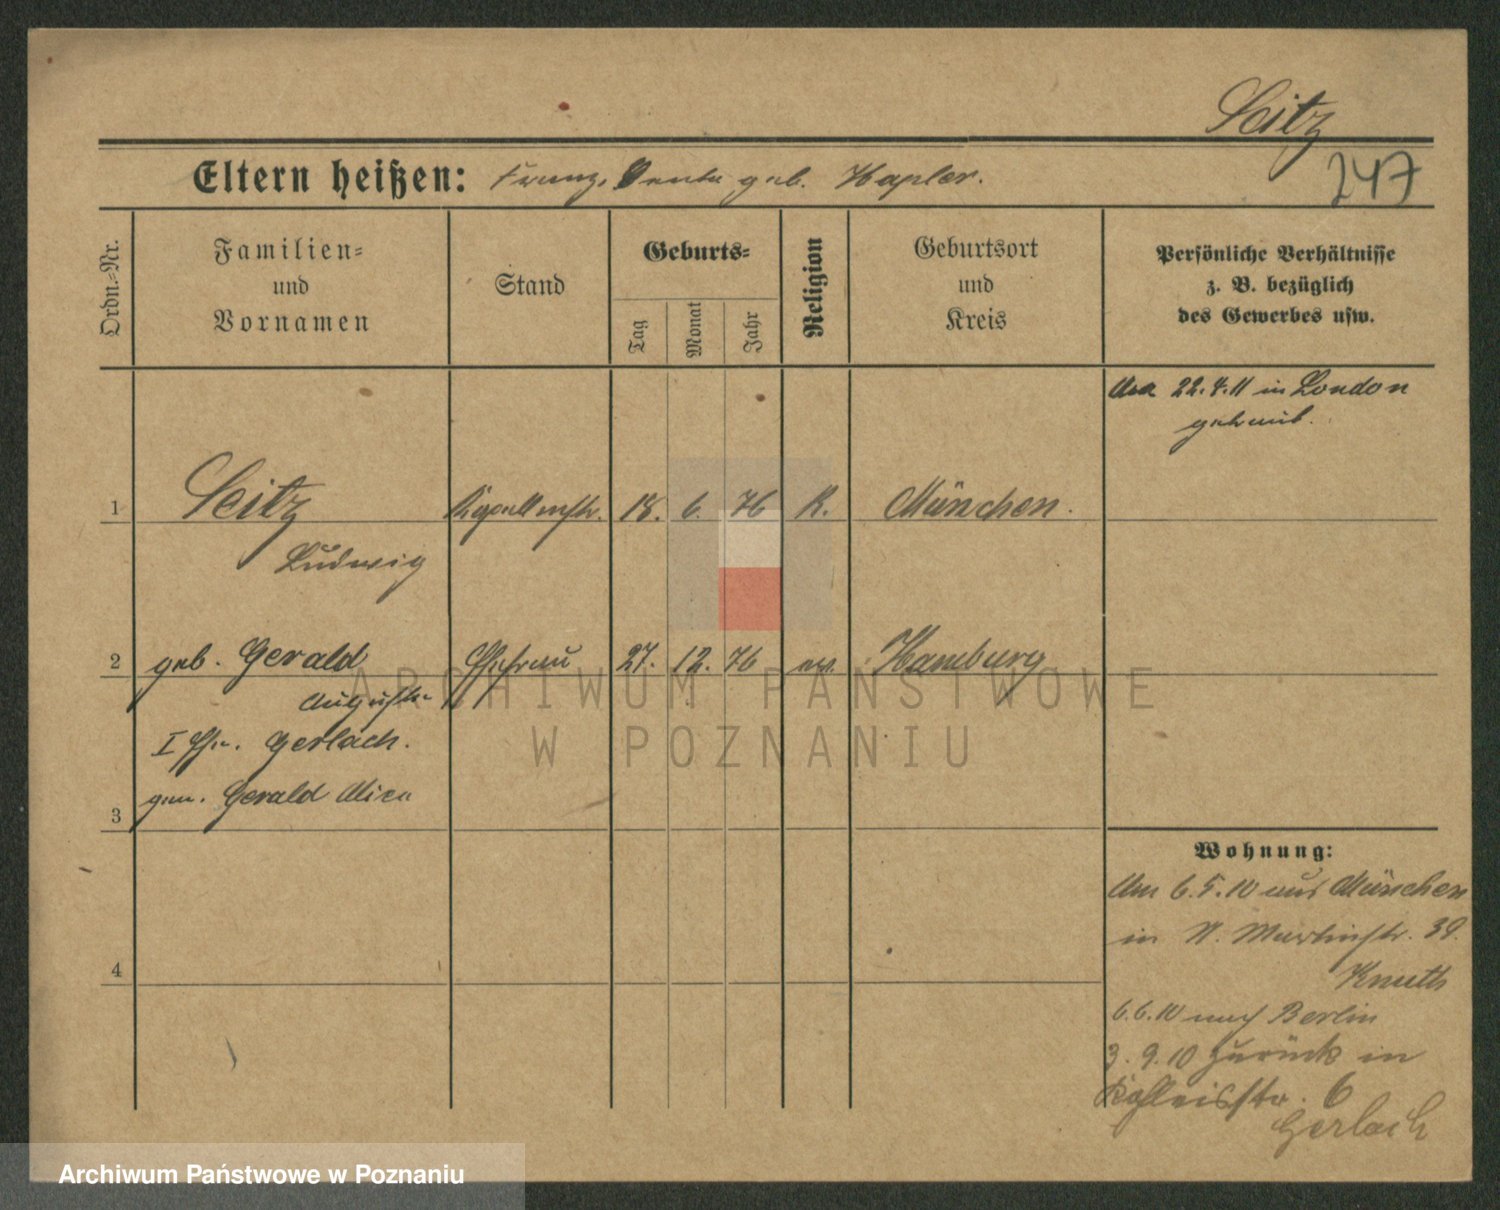 Seitz
247
Eltern heißen: Franz, geb. Hapler.
Ordn.-Nr.
Familien-
und
Vornamen
Stand
Geburts-
Tag
Monat
Jahr
Religion
Geburtsort
und
Kreis
Persönliche Verhältnisse
z. B. bezüglich
des Gewerbes usw.
22.4.11 in London
1 Seitz Kapellmstr. 18. 6. 76 K. München.
Ludwig
2 geb. Gerald Ehefrau 27. 12. 76 ev. Hamburg
Auguste
I Ehe. Gerlach.
3 gen. Gerald
4
Wohnung:
Am 6.5.10 aus München
in St. Martinstr. 39.
Knuth
6.6.10 nach Berlin
3.9.10 zurück in
6
Gerlach
ARCHIWUM PAŃSTWOWE
W POZNANIU
Archiwum Państwowe w Poznaniu